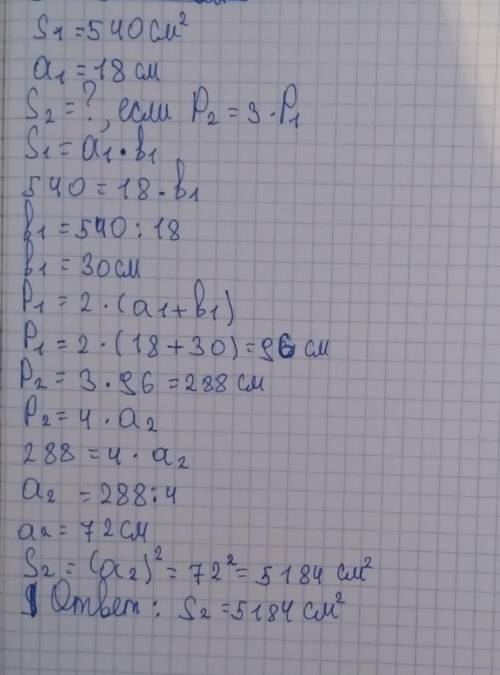 S₁ = 540 см²
a₁ = 18 см
S₂ = ?, если P₂ = 3 · P₁
S₁ = a₁ · b₁
540 = 18 · b₁
b₁ = 540 : 18
b₁ = 30 см
P₁ = 2 · (a₁ + b₁)
P₁ = 2 · (18 + 30) = 96 см
P₂ = 3 · 96 = 288 см
P₂ = 4 · a₂
288 = 4 · a₂
a₂ = 288 : 4
a₂ = 72 см
S₂ = (a₂)² = 72² = 5184 см²
Ответ: S₂ = 5184 см²